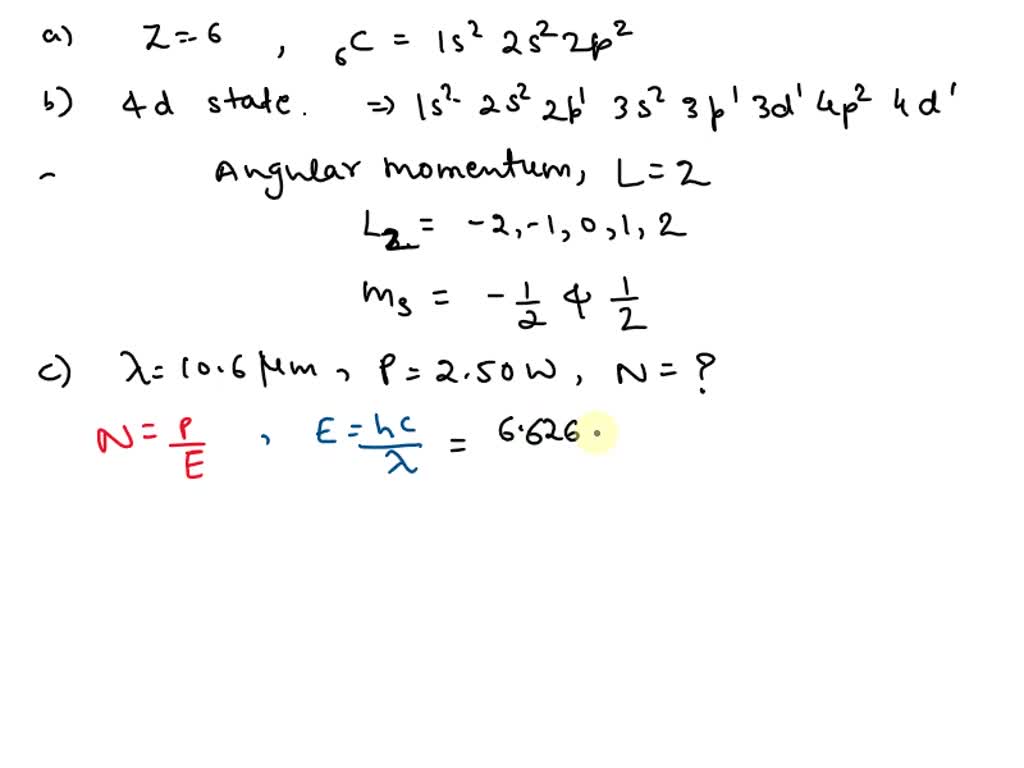 a) Z = 6 , ₆C = 1s² 2s² 2p²
b) 4d state. ⇒ 1s² 2s² 2p¹ 3s² 3p¹ 3d¹ 4p² 4d¹
~ Angular momentum, L = 2
L₂ = -2, -1, 0, 1, 2
mₛ = -1/2 & 1/2
c) λ = 10.6 μm, P = 2.50W, N = ?
N = P/E , E = hc/λ = 6.626.